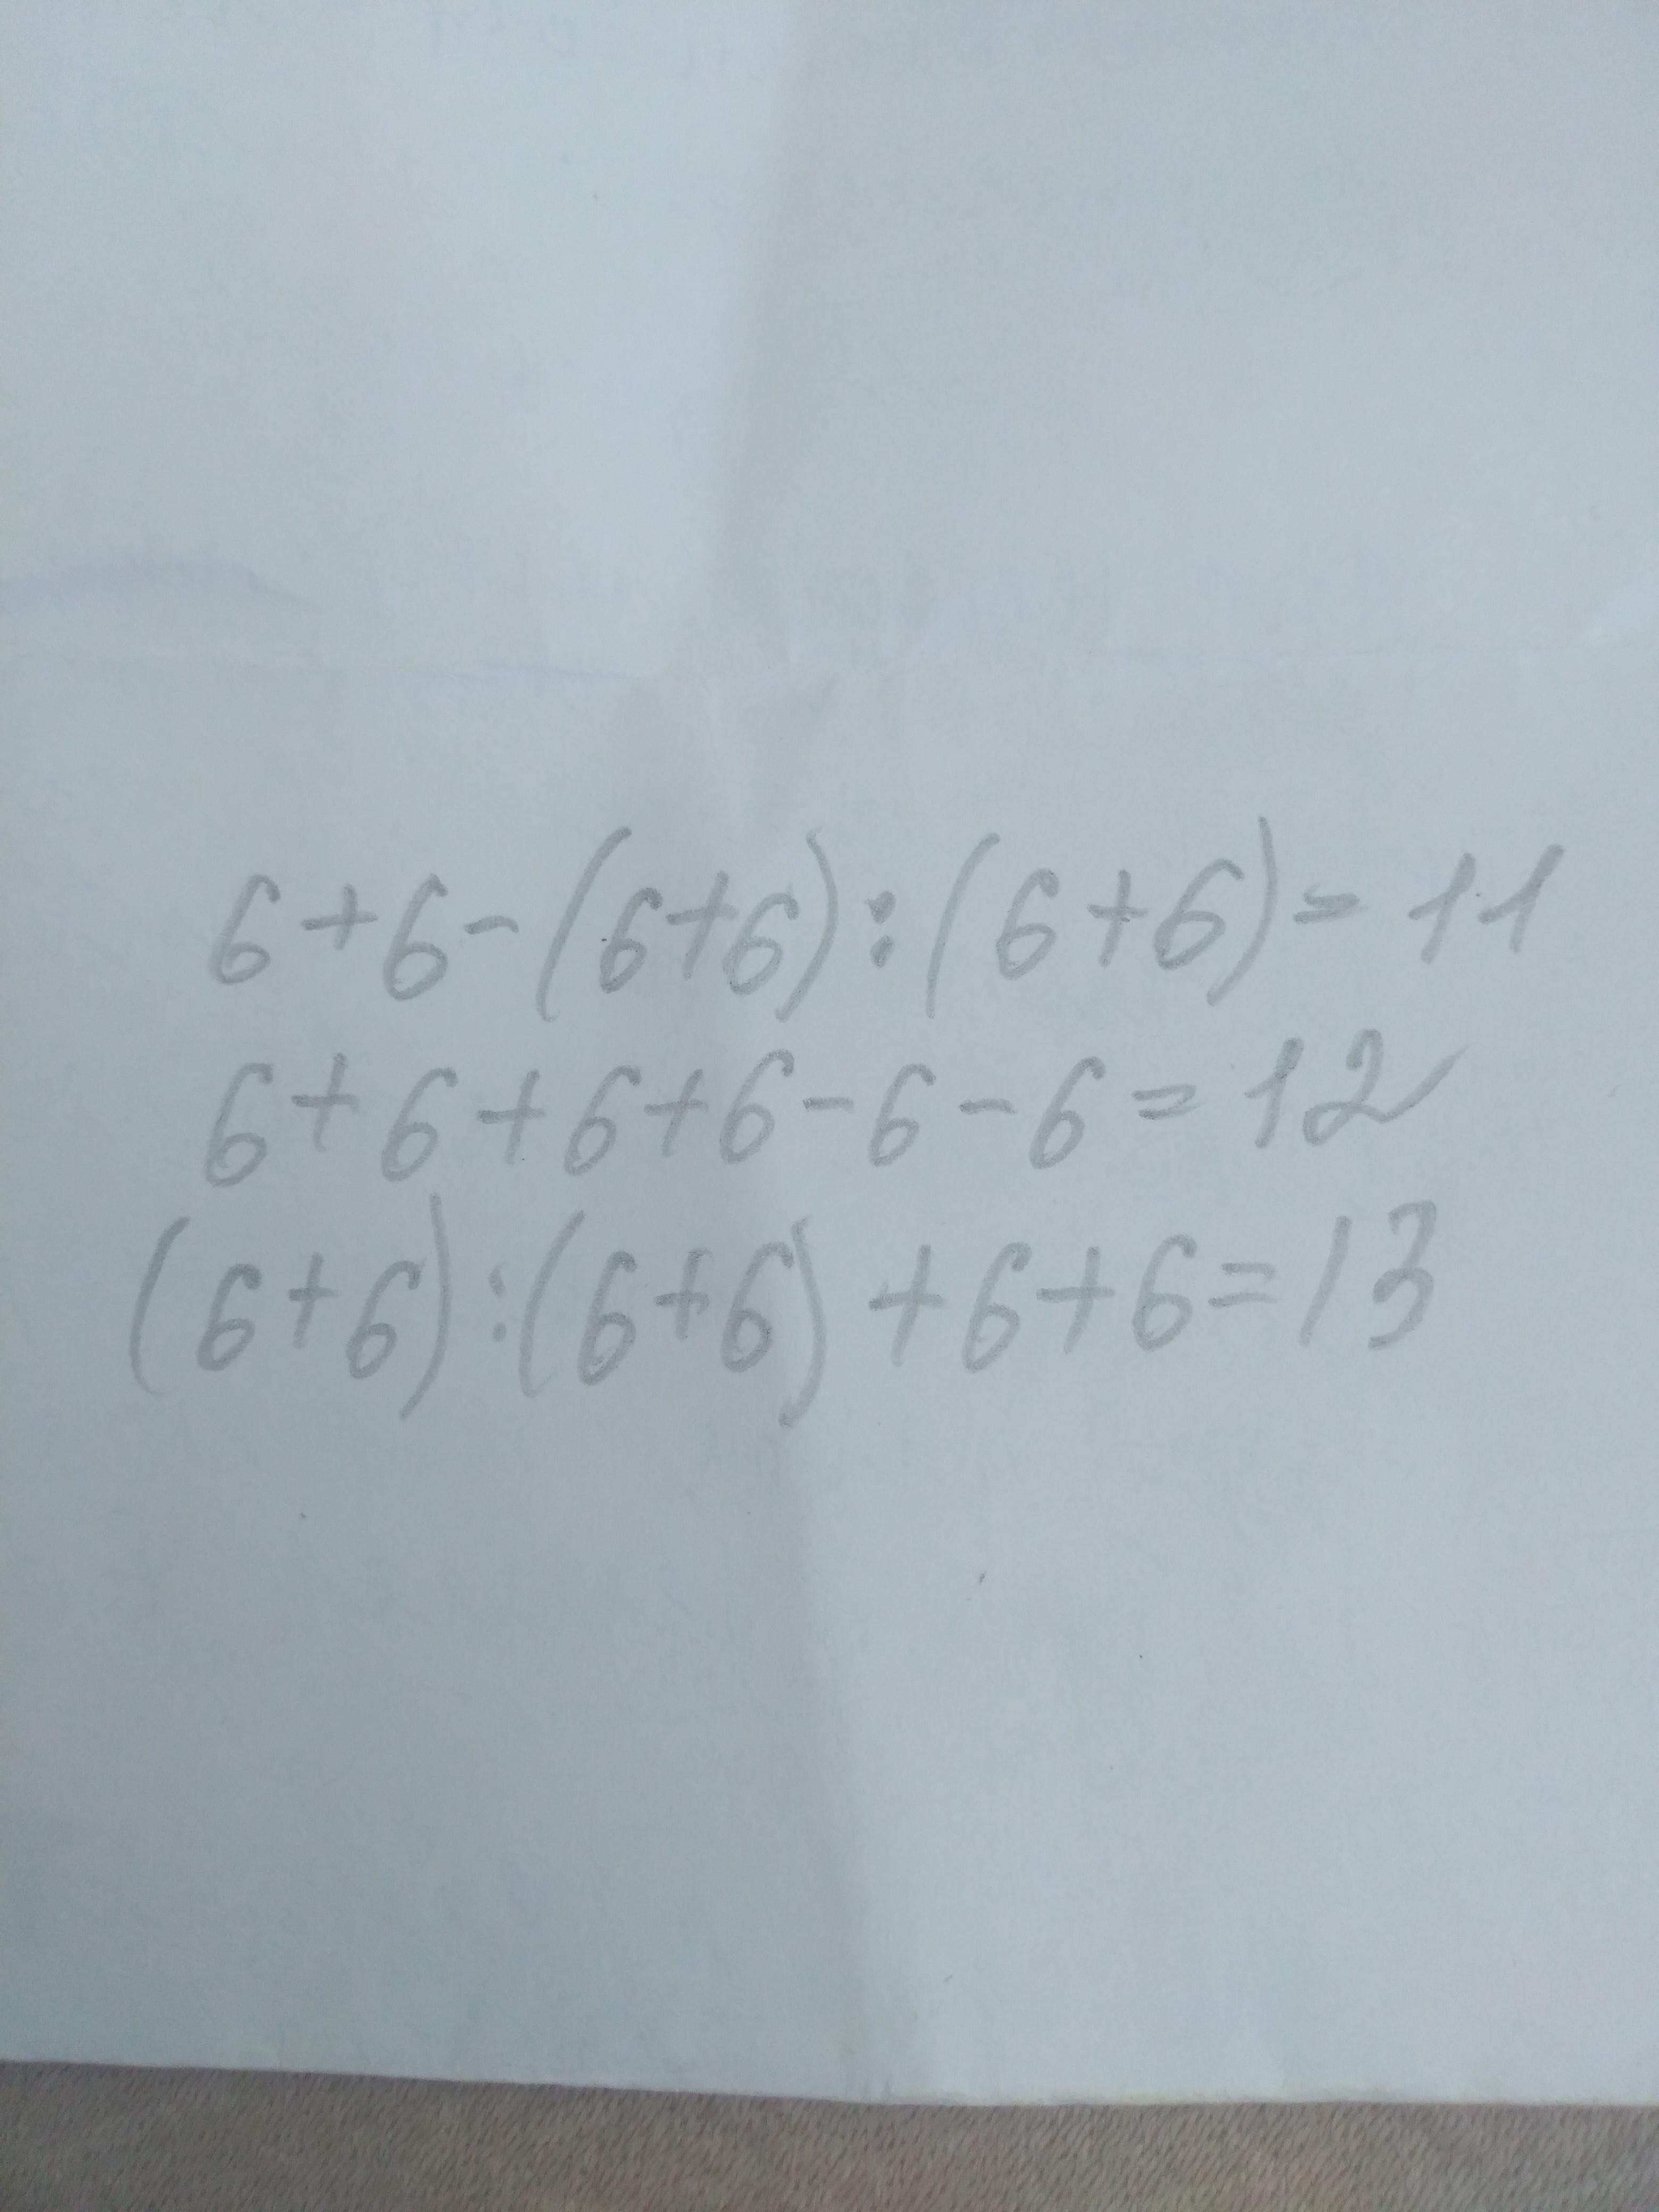 6+6-(6+6):(6+6)=11
6+6+6+6-6-6=12
(6+6):(6+6)+6+6=13